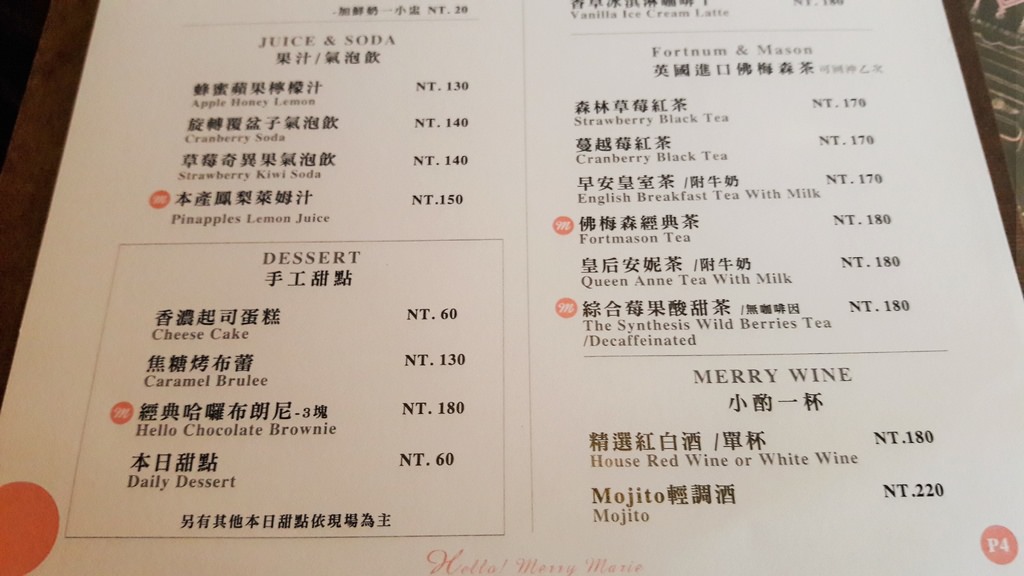 -加鮮奶一小盅 NT. 20
JUICE & SODA
果汁/氣泡飲
蜂蜜蘋果檸檬汁 NT. 130
Apple Honey Lemon
旋轉覆盆子氣泡飲 NT. 140
Cranberry Soda
草莓奇異果氣泡飲 NT. 140
Strawberry Kiwi Soda
M 本產鳳梨萊姆汁 NT.150
Pinapples Lemon Juice
DESSERT
手工甜點
香濃起司蛋糕 NT. 60
Cheese Cake
焦糖烤布蕾 NT. 130
Caramel Brulee
M 經典哈囉布朗尼-3塊 NT. 180
Hello Chocolate Brownie
本日甜點 NT. 60
Daily Dessert
另有其他本日甜點依現場為主
香草冰淇淋咖啡 NT. 180
Vanilla Ice Cream Latte
Fortnum & Mason
英國進口佛梅森茶 可回沖乙次
森林草莓紅茶 NT. 170
Strawberry Black Tea
蔓越莓紅茶 NT. 170
Cranberry Black Tea
早安皇室茶 /附牛奶 NT. 170
English Breakfast Tea With Milk
M 佛梅森經典茶 NT. 180
Fortmason Tea
皇后安妮茶 /附牛奶 NT. 180
Queen Anne Tea With Milk
M 綜合莓果酸甜茶 /無咖啡因 NT. 180
The Synthesis Wild Berries Tea
/Decaffeinated
MERRY WINE
小酌一杯
精選紅白酒 /單杯 NT.180
House Red Wine or White Wine
Mojito輕調酒 NT.220
Mojito
Hello! Merry Marie
P4